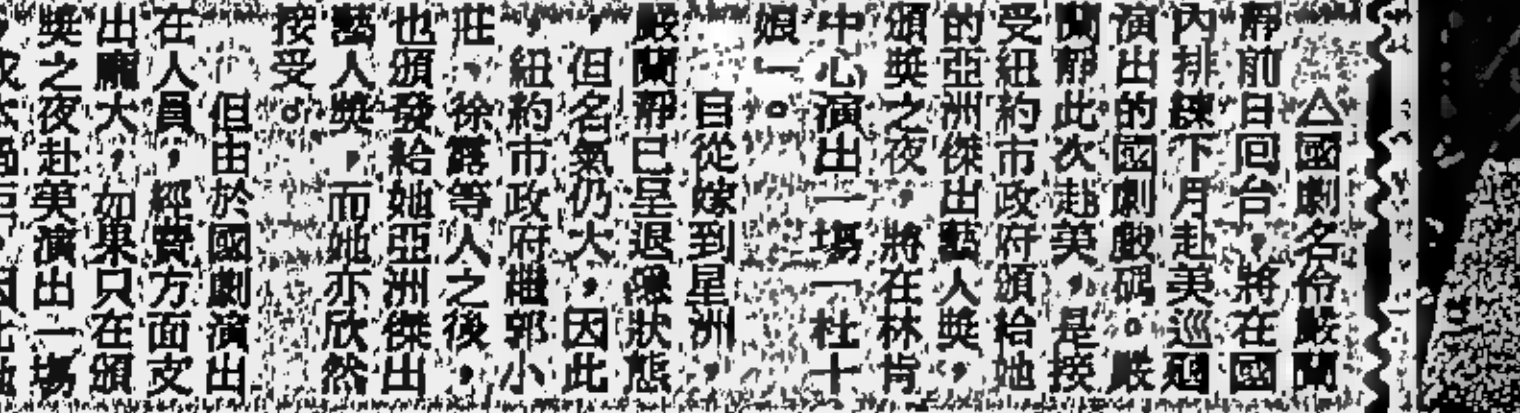 △國劇名伶嚴蘭
靜前日回台，將在國
內排練下月赴美巡迴
演出的國劇戲碼。嚴
蘭靜此次赴美，是接
受紐約市政府頒給她
的亞洲傑出藝人獎，
頒獎之夜，將在林肯
中心演出一場「杜十
娘」。
自從嫁到星洲，
嚴蘭靜已呈退隱狀態
，但名氣仍大，因此
，紐約市政府繼郭小
莊，徐露等人之後，
也頒發給她亞洲傑出
藝人獎，而她亦欣然
接受。
但由於國劇演出
在人員，經費方面支
出龐大，如果只在頒
獎之夜赴美演出一場